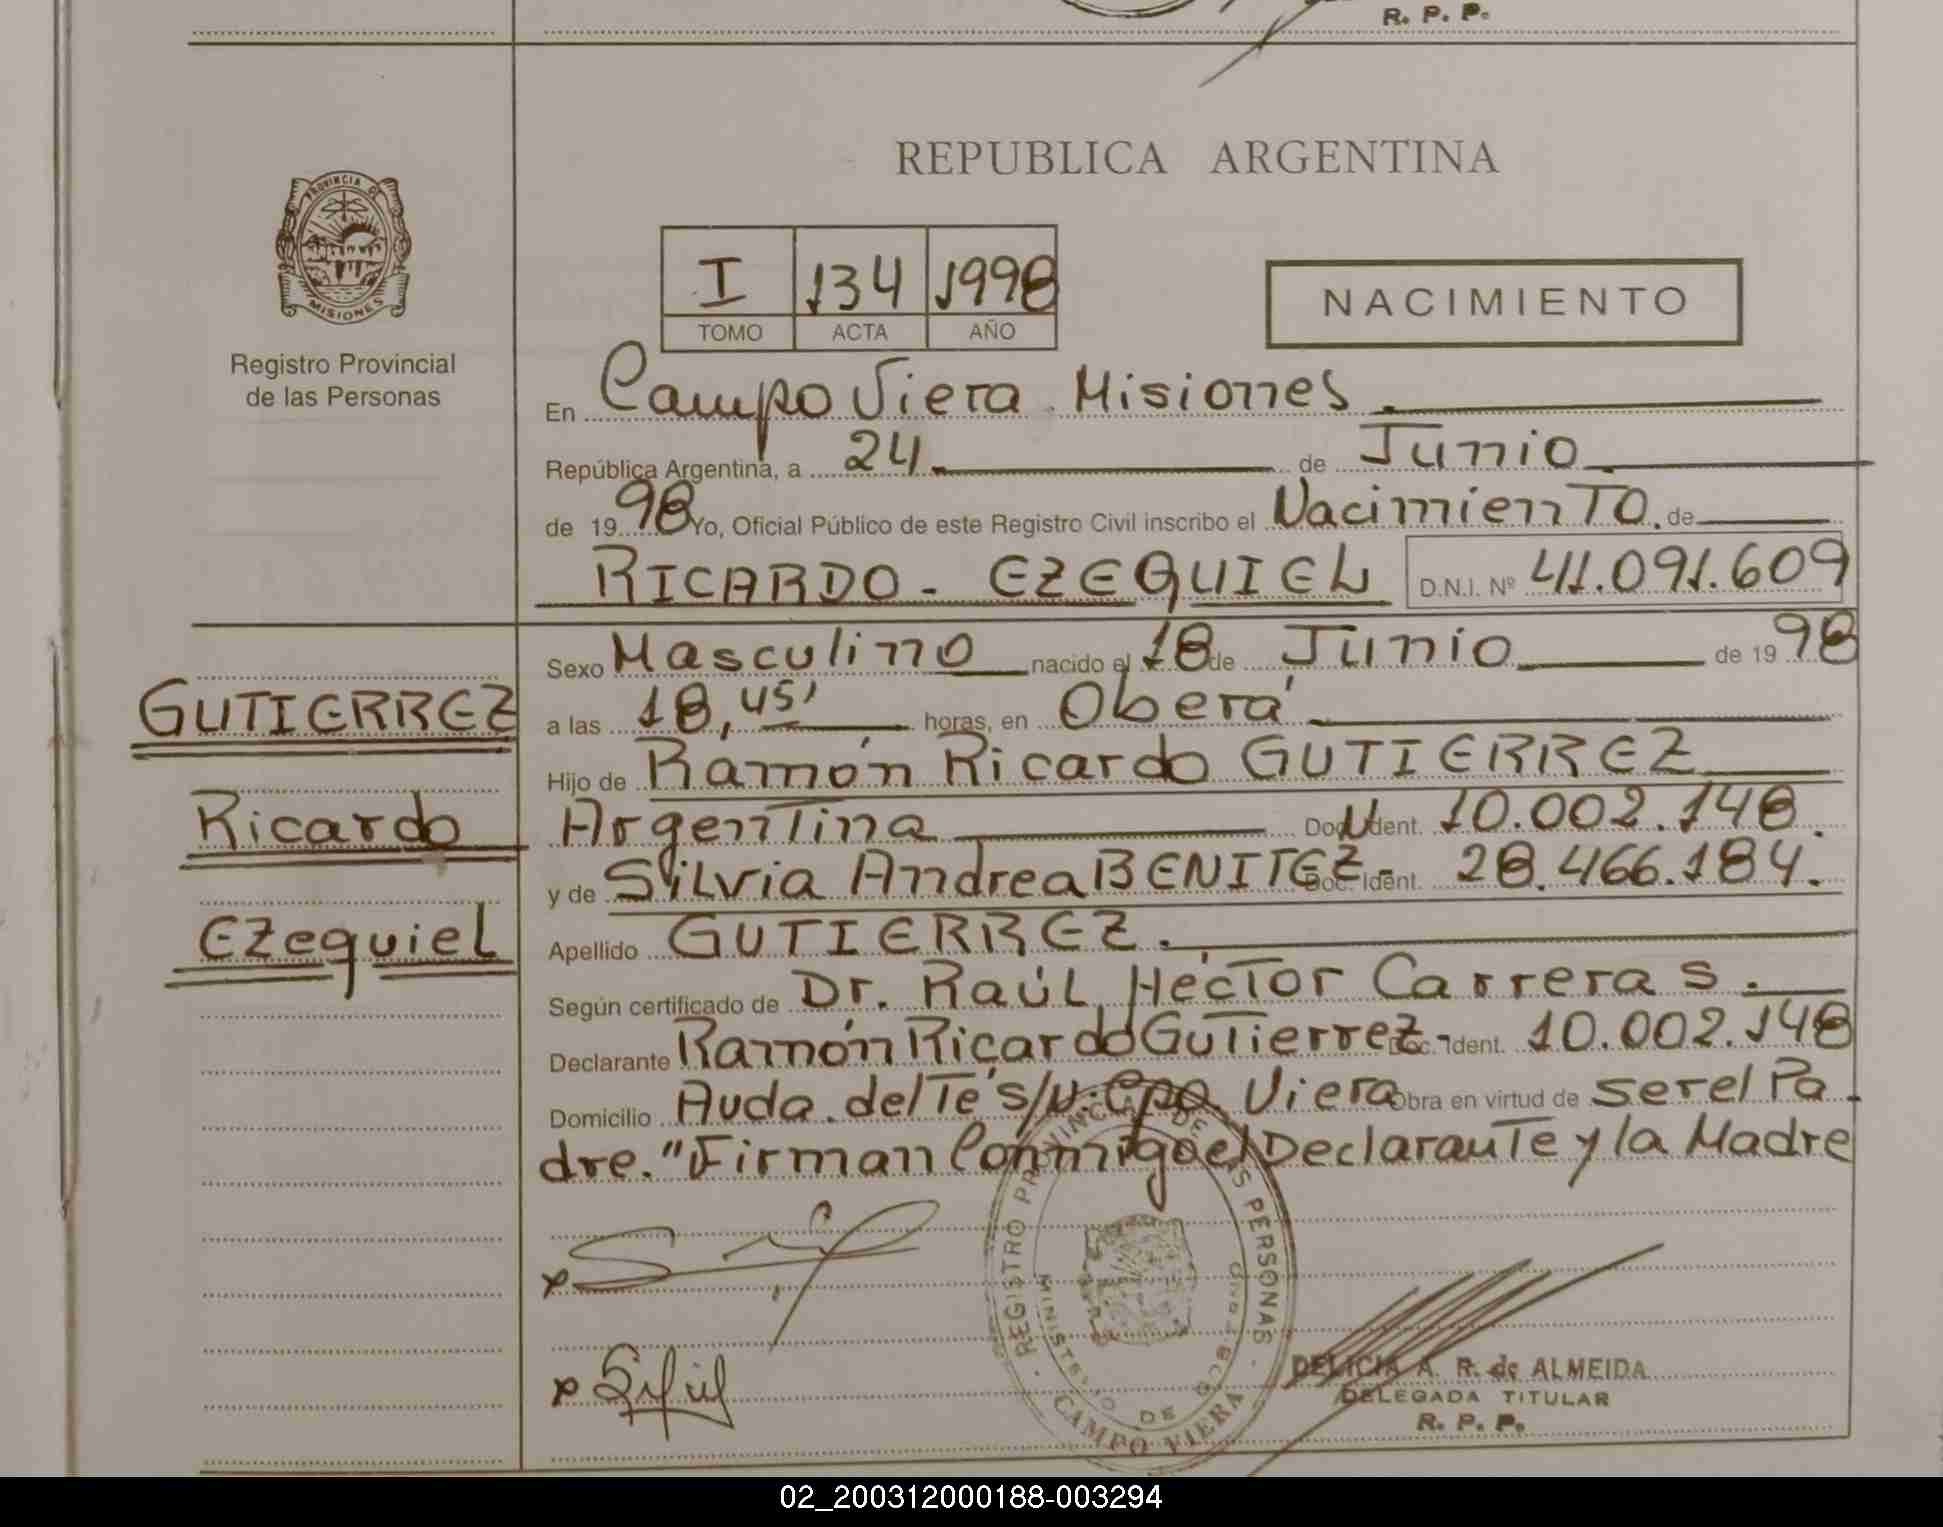 R. P. P.
PROVINCIA DE
MISIONES
Registro Provincial
de las Personas
REPUBLICA ARGENTINA
I 134 1998
TOMO ACTA AÑO
NACIMIENTO
En Campo Viera Misiones.
República Argentina, a 24 de Junio
de 19 98 Yo, Oficial Público de este Registro Civil inscribo el Nacimiento. de
RICARDO - EZEQUIEL D.N.I. Nº 41.091.609
GUTIERREZ
Ricardo
Ezequiel
Sexo Masculino nacido el 18 de Junio de 19 98
a las 18,45' horas, en Oberá
Hijo de Ramón Ricardo GUTIERREZ
Argentina Doc. Ident. 10.002.148.
y de Silvia Andrea BENITEZ- Doc. Ident. 28.466.184.
Apellido GUTIERREZ.
Según certificado de Dr. Raúl Héctor Carreras.
Declarante Ramón Ricardo Gutierrez- Doc. Ident. 10.002.148
Domicilio Avda. del Té s/N. Cpo. Viera Obra en virtud de ser el Pa-
dre." Firman Conmigo el Declarante y la Madre
REGISTRO PROVINCIAL DE LAS PERSONAS
MINISTERIO DE GOBIERNO
CAMPO VIERA
DELICIA A. R. de ALMEIDA
DELEGADA TITULAR
R. P. P.
02_200312000188-003294